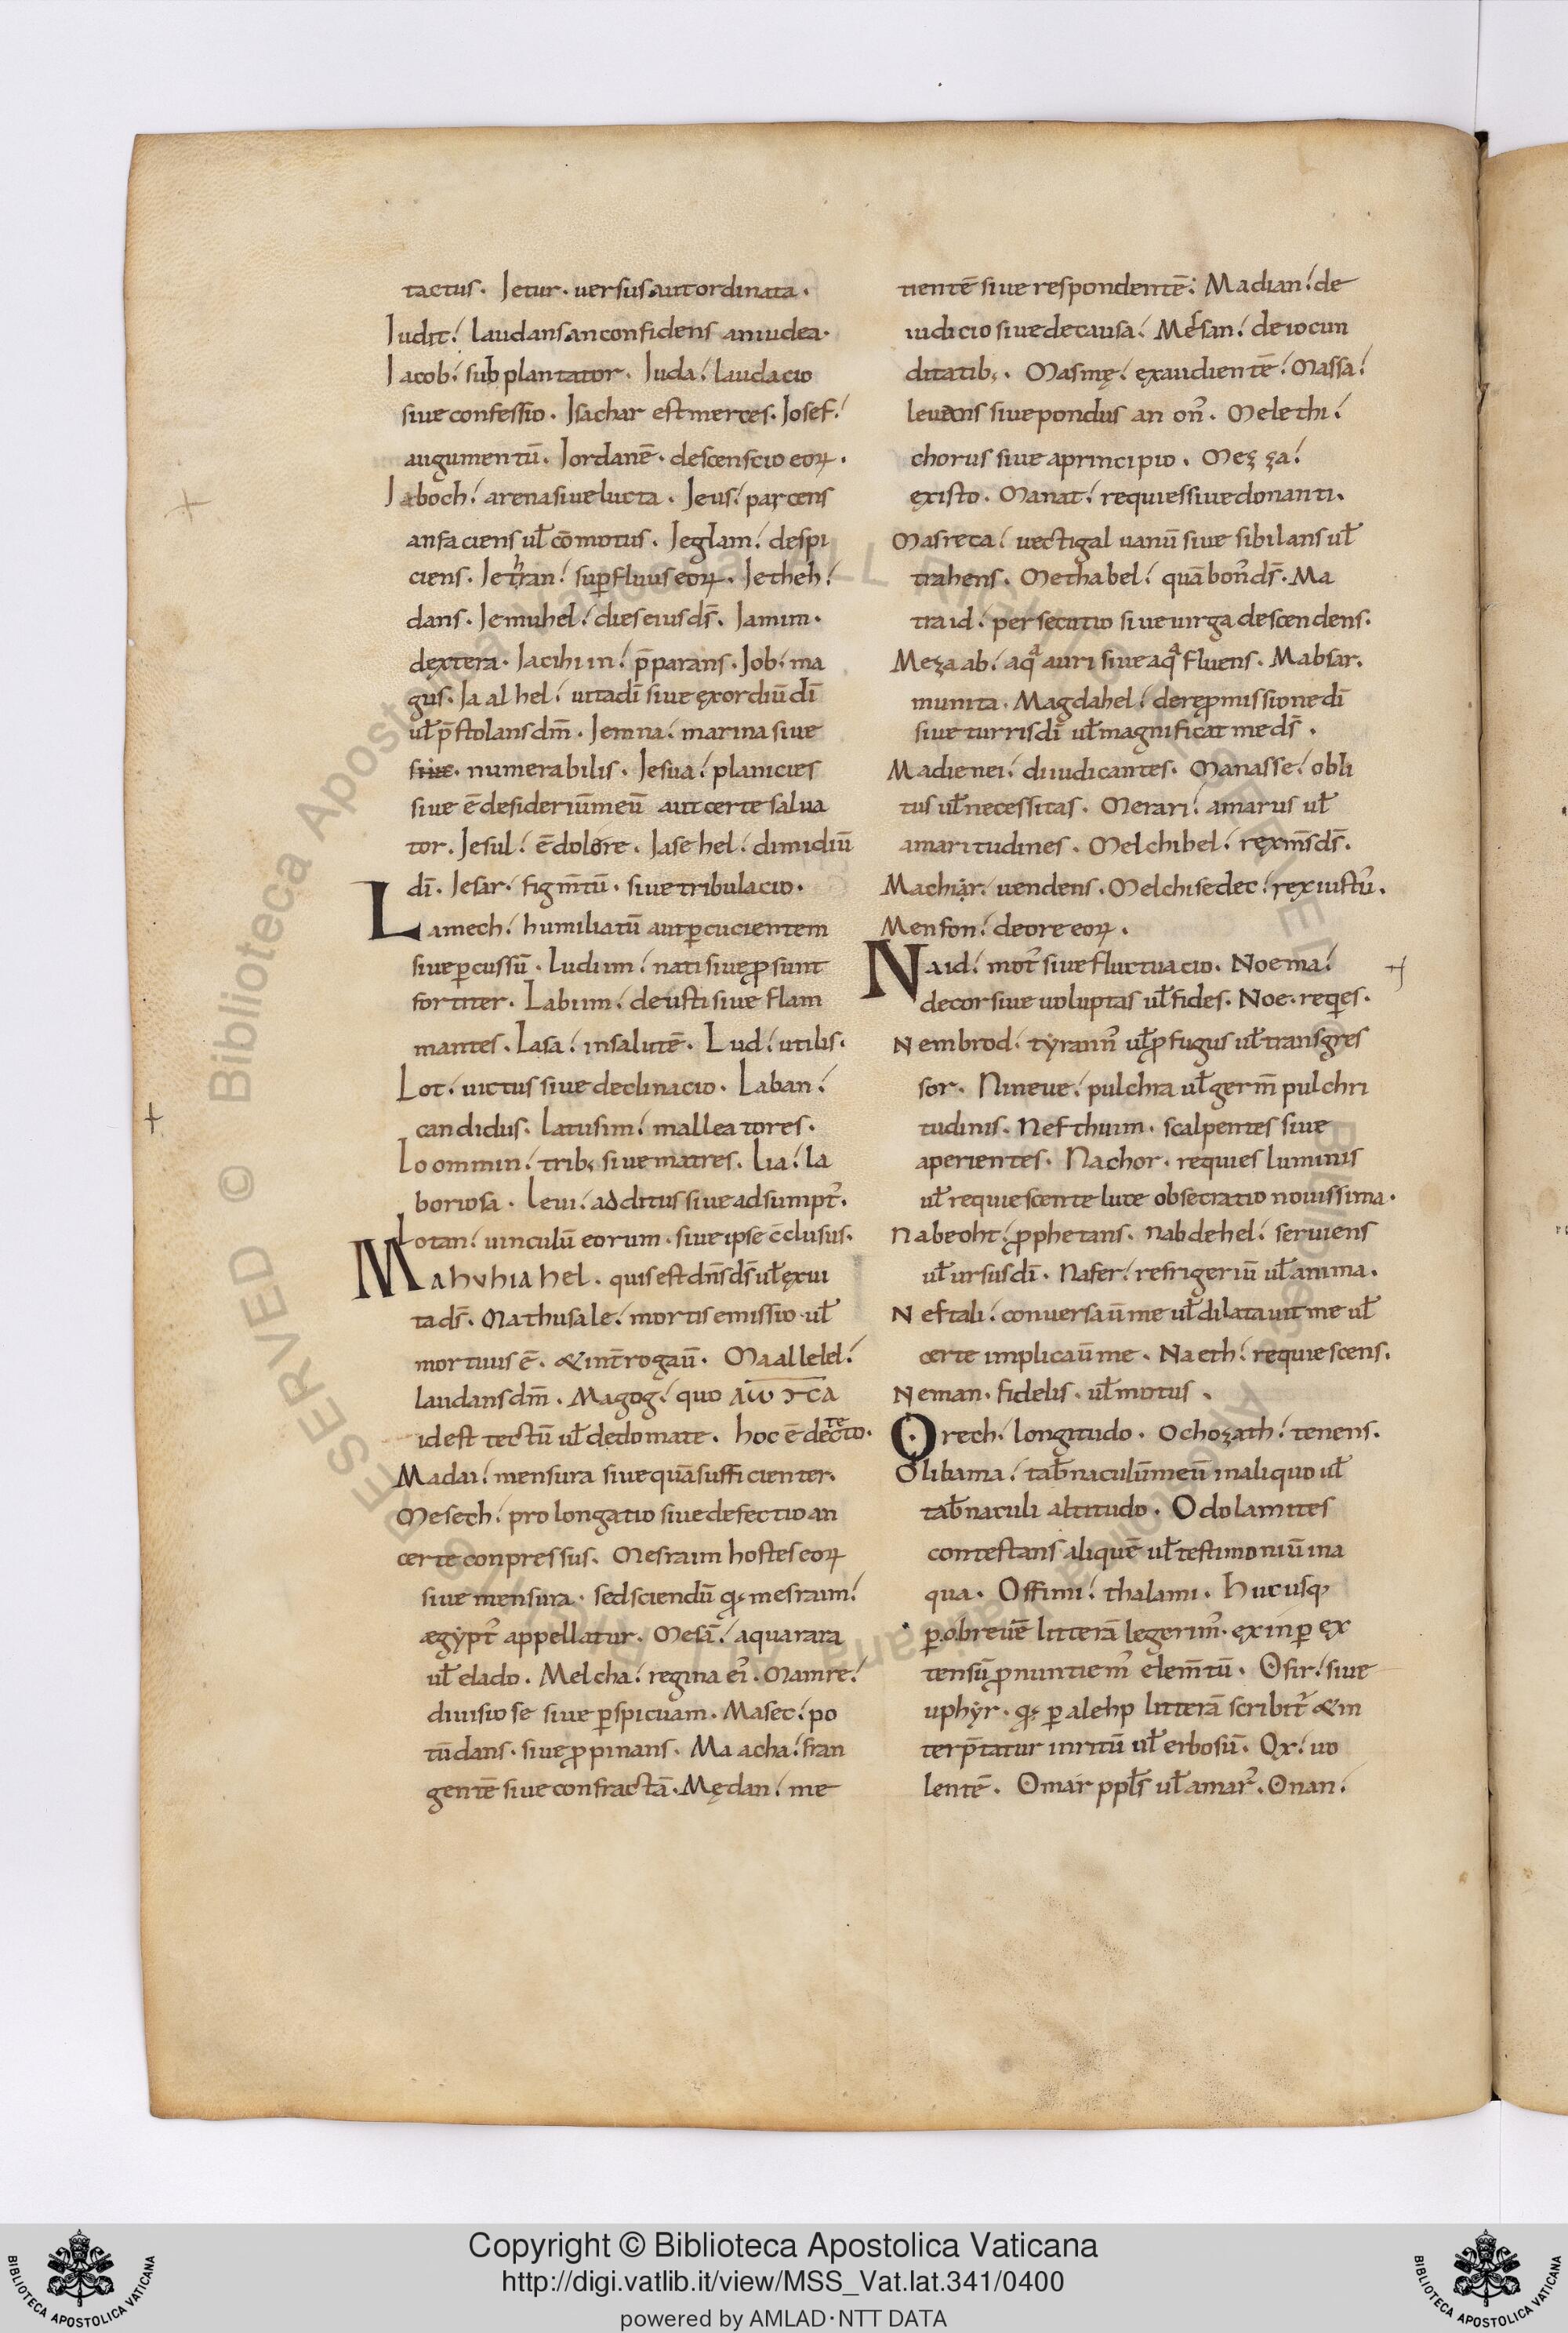 tactus. Ietur. versus aut ordinata.
Iudit! laudans an confidens an iudea.
Iacob! subplantator. Iuda! laudacio
sive confessio. Isachar est merces. Iosef!
augumentū. Iordanē. descenscio eoꝝ.
Iaboch! arena sive lucta. Ieus! parcens
an faciens uł cōmotus. Ieglam! despi
ciens. Iethran! suꝑfluus eoꝝ. Ietheh!
dans. Iemuhel! dies eius ds̄. Iamim.
dextera. Iacihim! p̄parans. Iob! ma
gus. Iaalhel! uita dī sive ęxordiū dī
uł p̄stolans dm̄. Iemna! marina sive
sive. numerabilis. Iesua! planicies
sive ē desideriū meū aut certe salua
tor. Iesul! ē dolore. Iasehel! dimidiū
dī. Iesar! figm̄tū. sive tribulacio.
Lamech! humiliatū aut ꝑcucientem
sive ꝑcussū. Ludim! nati sive ꝓsunt
fortiter. Labiim! deusti sive flam
mantes. Lasa! in salutē. Lud! utilis.
Lot! uictus sive declinacio. Laban!
candidus. Latusim! malleatores.
Loommin! tribꝫ sive matres. Lia! la
boriosa. Leui! additus sive adsumpt᾿.
Lotan! uinculū eorum. sive ipse c̄clusus.
Mahuhiahel. quis est dn̄s ds̄ uł ęxui
ta ds̄. Mathusale! mortis emissio uł
mortuus ē. & int̄rogaū. Maallelel!
laudans dm̄. Magog! quo
id est tectū uł de domate. hoc ē de tecto.
Madai! mensura sive quā sufficienter.
Mesech! prolongatio sive defectio an
certe conpressus. Mesraim hostes eoꝝ
sive mensura. sed sciendū qꝫ mesraim!
ægẏpt᾿ appellatur. Mesā! aqua rara
uł elado. Melcha! regina ei᾿. Mamre!
divisio se sive ꝑspicuam. Masec! po
tū dans. sive ꝓpinans. Maacha! fran
gentē sive confractā. Mędan! me
tientē sive respondentē! Madian! de
iudicio sive de causa! Mabsan! de iocun
ditatibꝫ. Masmę! ęxaudientē! Massa!
levans sive pondus an on᾿. Melethi!
chorus sive a principio. Mezza!
ęxisto. Manat! requies sive donanti.
Masreca! vectigal uanū sive sibilans uł
trahens. Methabel! quā bon᾿ ds̄. Ma
traid! persecutio sive uirga descendens.
Mezaab! aqa auri sive aqa fluens. Mabsar.
munita. Magdahel! de reꝓmissione dī
sive turris dī uł magnificat me ds̄.
Madienei! diiudicantes. Manasse! obli
tus uł necessitas. Merari! amarus uł
amaritudines. Melchihel! ręx m̄s ds̄.
Machir! uendens. Melchisedec! ręx iust᾿.
Menfon! de ore eoꝝ.
Naid! mot᾿ sive fluctuacio. Noema!
decor sive uoluptas uł fides. Noe. reqes.
Nembrod! tẏrann᾿ uł ꝓfugus uł transgres
sor. Nineue! pulchra uł germ̄ pulchri
tudinis. Nefthuim. scalpentes sive
aperientes. Nachor. requies luminis
uł requiescente luce obsecratio nouissima.
Nabeoht! ꝓphetans. Nabdehel! serviens
uł ursus dī. Nafer! refrigeriū uł anima.
Neftali! conversaū me uł dilatauit me uł
certe implicaū me. Naeth! requiescens.
Neman. fidelis. uł motus.
Orech! longitudo. Ochozath! tenens.
Olibama! tab̄naculū meū in aliquo uł
tab̄naculi altitudo. Odolamites
contestans aliquē uł testimoniū in a
qua. Offimi! thalami. Hucusqꝫ
ꝑ o brevē litterā legerim᾿. exin ꝑ ęx
tensū ꝓnuntiem᾿ elem̄tū. Ofir! sive
uphẏr. qꝫ ꝑ alehp litterā scribit᾿ & in
terp̄tatur inritū uł erbosū. Ox! uo
lentē. Omar ppls̄ uł amar᾿. Onan!
Copyright © Biblioteca Apostolica Vaticana
http://digi.vatlib.it/view/MSS_Vat.lat.341/0400
powered by AMLAD·NTT DATA